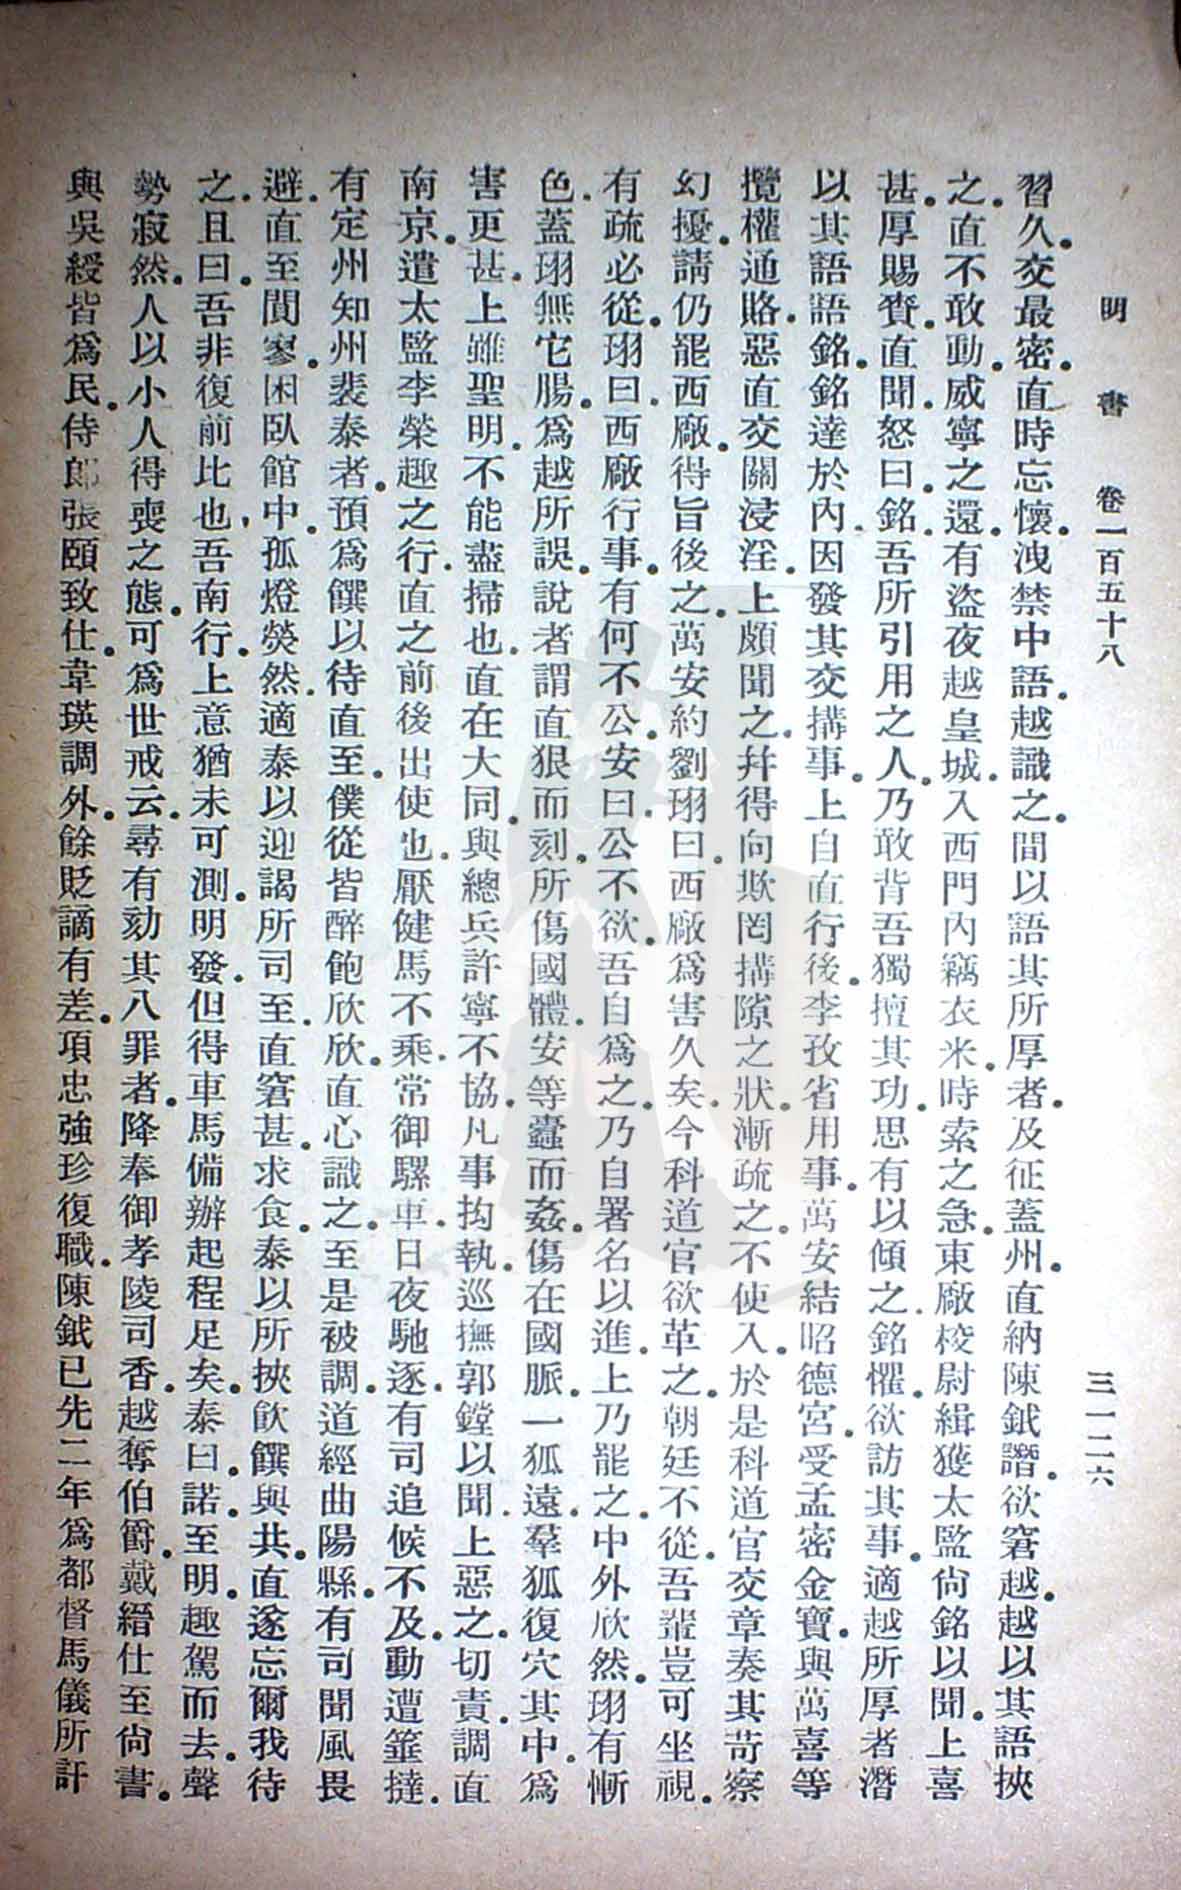 明書 卷一百五十八 三一二六
習久。交最密。直時忘懷。洩禁中語。越識之。間以語其所厚者。及征蓋州。直納陳鉞譖。欲窘越。越以其語挾
之。直不敢動。威寧之還。有盜夜越皇城。入西門內竊衣米。時索之急。東廠校尉緝獲。太監尙銘以聞。上喜
甚。厚賜賚。直聞。怒曰。銘。吾所引用之人。乃敢背吾獨擅其功。思有以傾之。銘懼。欲訪其事。適越所厚者潛
以其語語銘。銘達於內。因發其交搆事。上自直行後。李孜省用事。萬安結昭德宮。受孟密金寶。與萬喜等
攬權通賂。惡直交關浸淫。上頗聞之。幷得向欺罔搆隙之狀。漸疏之。不使入。於是科道官交章奏其苛察
幻擾。請仍罷西廠。得旨後之。萬安約劉珝曰。西廠爲害久矣。今科道官欲革之。朝廷不從。吾輩豈可坐視。
有疏必從。珝曰。西廠行事。有何不公。安曰。公不欲。吾自爲之。乃自署名以進。上乃罷之。中外欣然。珝有慚
色。蓋珝無它腸。爲越所誤。說者謂直狠而刻。所傷國體。安等蠹而姦。傷在國脈。一狐遠。羣狐復穴其中。爲
害更甚。上雖聖明。不能盡掃也。直在大同。與總兵許寧不協。凡事拘執。巡撫郭鏜以聞。上惡之。切責。調直
南京。遣太監李榮趣之行。直之前後出使也。厭健馬不乘。常御騾車。日夜馳逐。有司追候不及。動遭箠撻。
有定州知州裴泰者。預爲饌以待直至。僕從皆醉飽欣欣。直心識之。至是被調。道經曲陽縣。有司聞風畏
避。直至閴寥。困臥館中。孤燈熒然。適泰以迎謁所司至。直窘甚。求食。泰以所挾飮饌與共。直遂忘爾我待
之。且曰。吾非復前比也。吾南行。上意猶未可測。明發。但得車馬備辦起程足矣。泰曰。諾。至明。趣駕而去。聲
勢寂然。人以小人得喪之態。可爲世戒云。尋有劾其八罪者。降奉御孝陵司香。越奪伯爵。戴縉仕至尙書。
與吳綬皆爲民。侍郞張頤致仕。韋瑛調外。餘貶謫有差。項忠強珍復職。陳鉞已先二年爲都督馬儀所訐